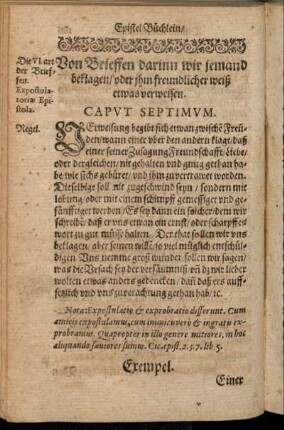 Epistel Büchlein/
Die VI. art
der Brief-
fen.
Expostula-
toriæ Epi-
stola.
Von Brieffen darinn wir jemand
beklagen/oder jhm freundlicher weiß
etwas verweisen.
CAPVT SEPTIMVM.
Regel.
VErweisung begibt sich etwan zwischē Freü-
den/wann einer vber den andern klagt/daß
einer seiner Zusagung/Freundschafft/Liebe/
oder dergleichen/nit gehalten vnd gnug gethan ha-
be wie sichs gebüret/vnd jhm zuvertrawet worden.
Dieselbige soll nit zugeschwind seyn/sondern mit
lobung/oder mit einem schimpff gemessiget vnd ge-
sänfftiget werden/Es sey dann ein solcher/dem wir
schreibē/daß er vns etwan ein ernst/oder scharpffes
wort zu gut müsse halten. Der that sollen wir vns
beklagen/aber seinen willē/so viel müglich entschül-
digen. Vns nemme groß wunder sollen wir sagen/
was die Vrsach sey der versäumnuß vñ dz wir lieber
wolten etwas anders gedencken/dañ daß ers auff-
setzlich vnd vns zuverachtung gethan hab/ꝛc.
Nota: Expostulatio & exprobratio differunt. Cum
amicis expostulamus, cum inimicis verò & ingratis ex-
probramus. Quapropter in illo genere mitiores, in hoc
aliquando sæviores sumus. Cic. epist. 2. 5. 7. lib 5.
Exempel.
Einer